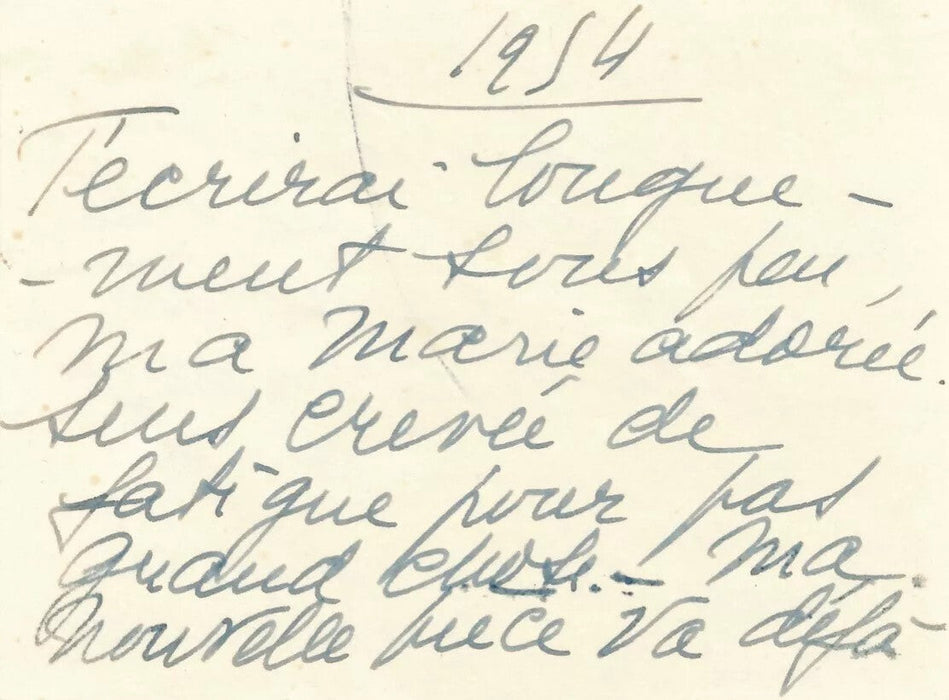 1954
T'écrirai longue-
-ment sous peu,
ma Marie adorée.
Suis crevée de
fatigue pour pas
grand chose. - Ma
nouvelle pièce va déjà